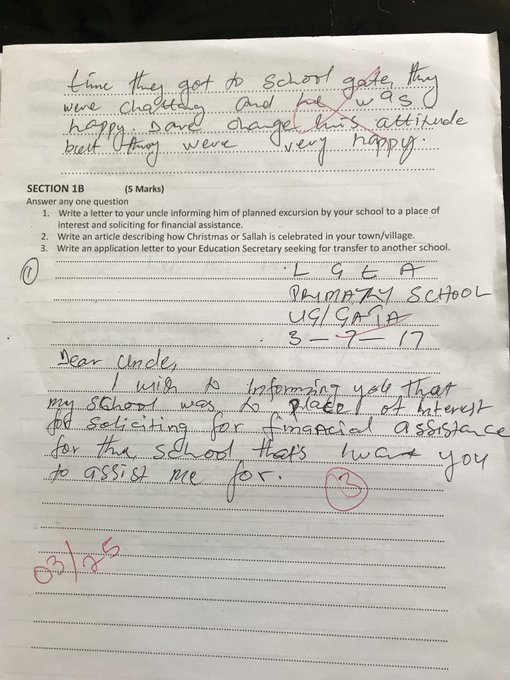 time they got to school gate, they
were chatting and he was
happy. Dave change his attitude
but they were very happy.
SECTION 1B (5 Marks)
Answer any one question
1. Write a letter to your uncle informing him of planned excursion by your school to a place of
interest and soliciting for financial assistance.
2. Write an article describing how Christmas or Sallah is celebrated in your town/village.
3. Write an application letter to your Education Secretary seeking for transfer to another school.
1
L G E A
PRIMARY SCHOOL
UG/
3-7-17
Dear Uncle,
I wish to informing you that
my school was to place of interest
for soliciting for financial assistance
for the school that's I want you
to assist me for.
3
03/25